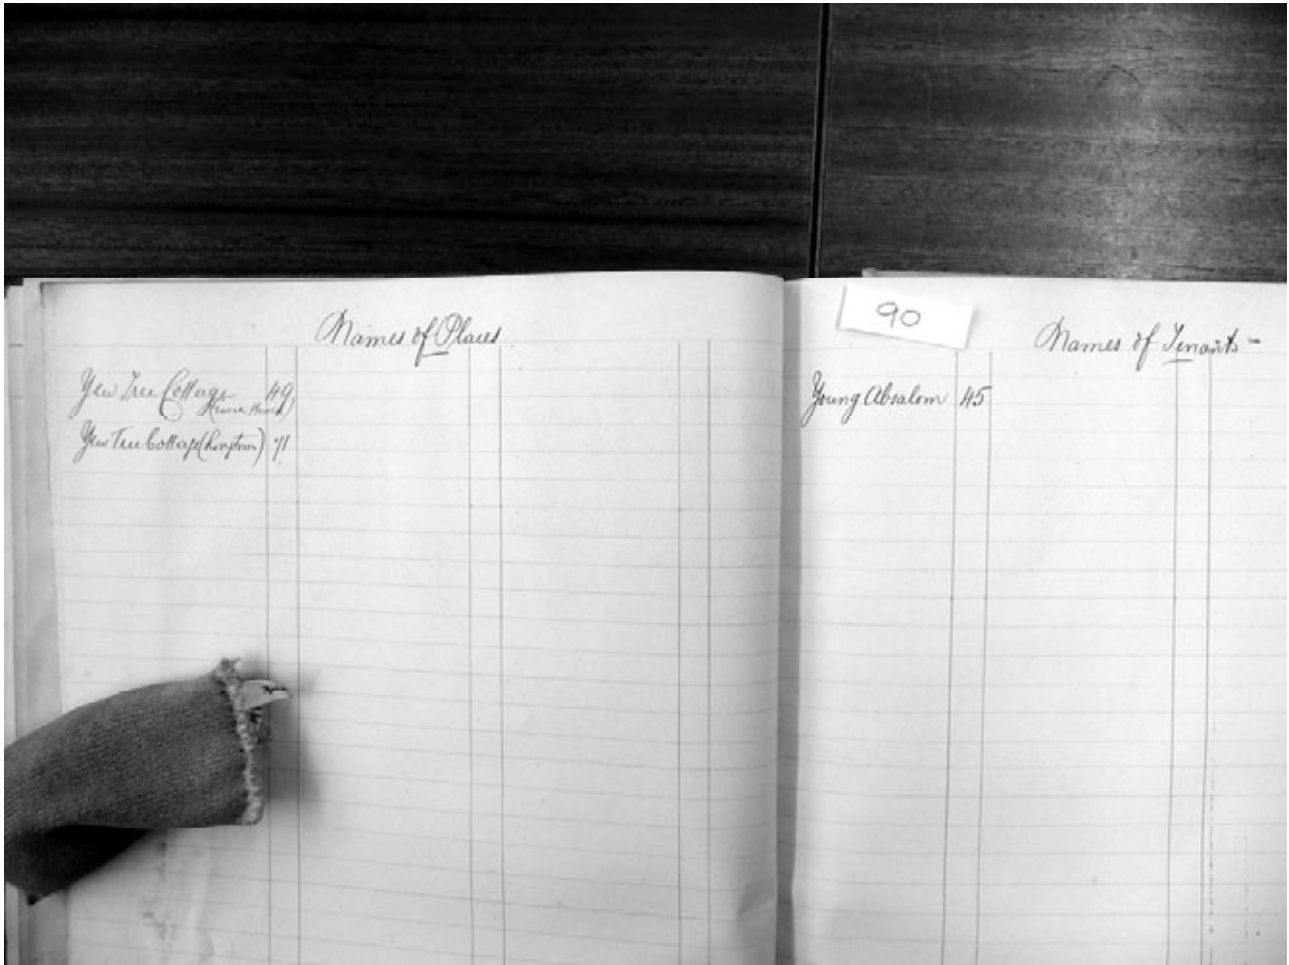 Names of Places
Yew Tree Cottage 49
Yew Tree Cottage (Longtown) 71
90
Names of Tenants
Young Absalom 45